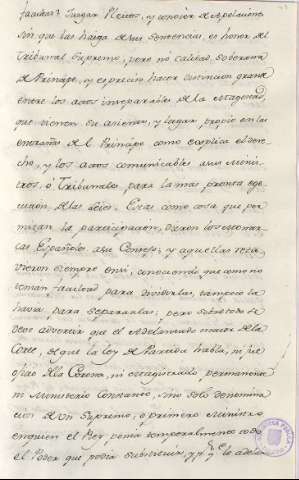 facultar? Juzgar Pleitos, y conocer de Apelacions
sin que las haiga de sus sentencias, es honor del
Tribunal Supremo, pero no calidad soberana
de Principe, y es preciso hacer distincion grande
entre los actos inseparables de la Magestad,
que tienen su asiento, y lugar propio en las
entrañas del Principe como explica el dere-
cho, y los actos comunicables a sus Minis-
tros, ó Tribunales, para la mas pronta ege-
cucion de las leies. Estas como cosa que per-
mitian la participacion, dieron los Monar-
cas Españoles a su Consejo; y aquellas retu-
vieron siempre en si, conociendo que como no
tenian facultad para dividirlas, tampoco la
havia para separarlas, pero sobre todo se
deve advertir que el Adelantado maior de la
Corte, de que la ley de Partida habla, ni fue
oficio de la Corona, ni Magistrado permanente
ni Ministerio Constante, sino solo denomina
cion de un Supremo, o primero Ministro
en quien el Rey, ponia temporalmente todo
el Poder que podia substituir, y